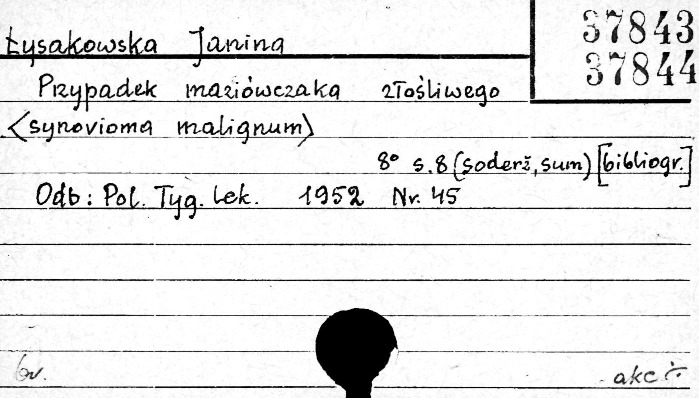 Łysakowska Janina
37843
37844
Przypadek maziówczaka złośliwego
<synovioma malignum>
8° s.8 (soderž, sum) [bibliogr.]
Odb: Pol. Tyg. lek. 1952 Nr. 45
br.
akc